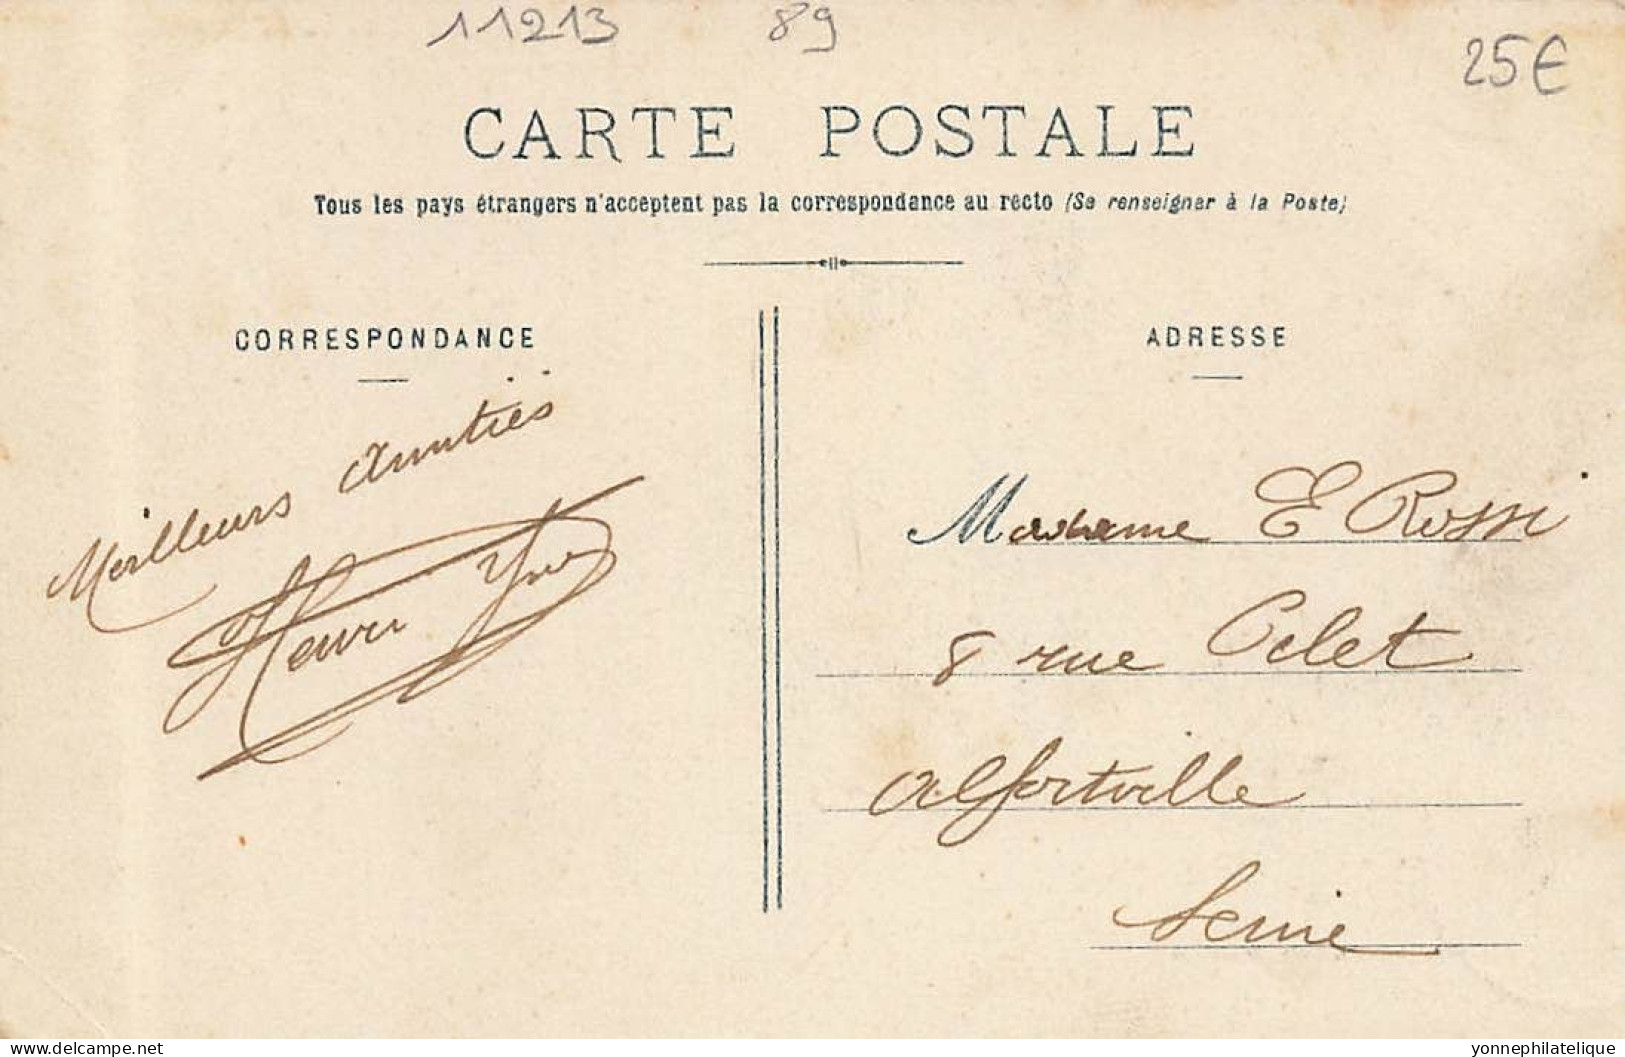 11213 89
25€
CARTE POSTALE
Tous les pays étrangers n'acceptent pas la correspondance au recto (Se renseigner à la Poste)
CORRESPONDANCE
Meilleurs Amitiés
ADRESSE
Madame E Rossi
8 rue
Alfortville
Seine
delcampe.net
yonnephilatelique